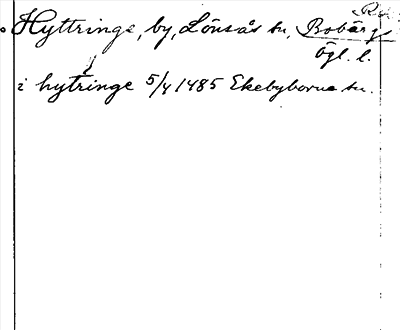 Hyttringe, by, Lönsås sn, Bobärgs
Ögl. l.
i hytringe 5/4 1485 Ekebyborna sn.